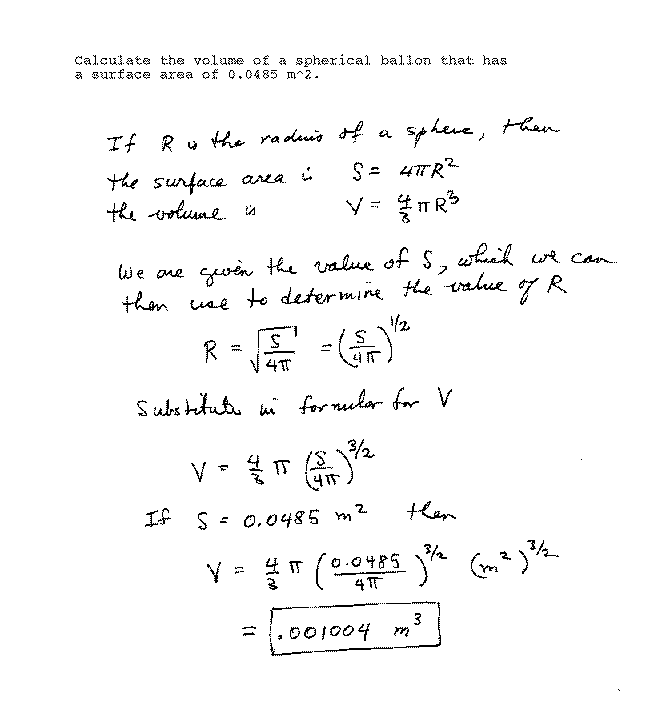 Calculate the volume of a spherical ballon that has
a surface area of 0.0485 m^2.
If R is the radius of a sphere, then
the surface area is S = 4πR²
the volume is V = 4/3 πR³
We are given the value of S, which we can
then use to determine the value of R
R = √(S/4π) = (S/4π)^1/2
Substitute in formular for V
V = 4/3 π (S/4π)^3/2
If S = 0.0485 m² then
V = 4/3 π (0.0485/4π)^3/2 (m²)^3/2
= .001004 m³